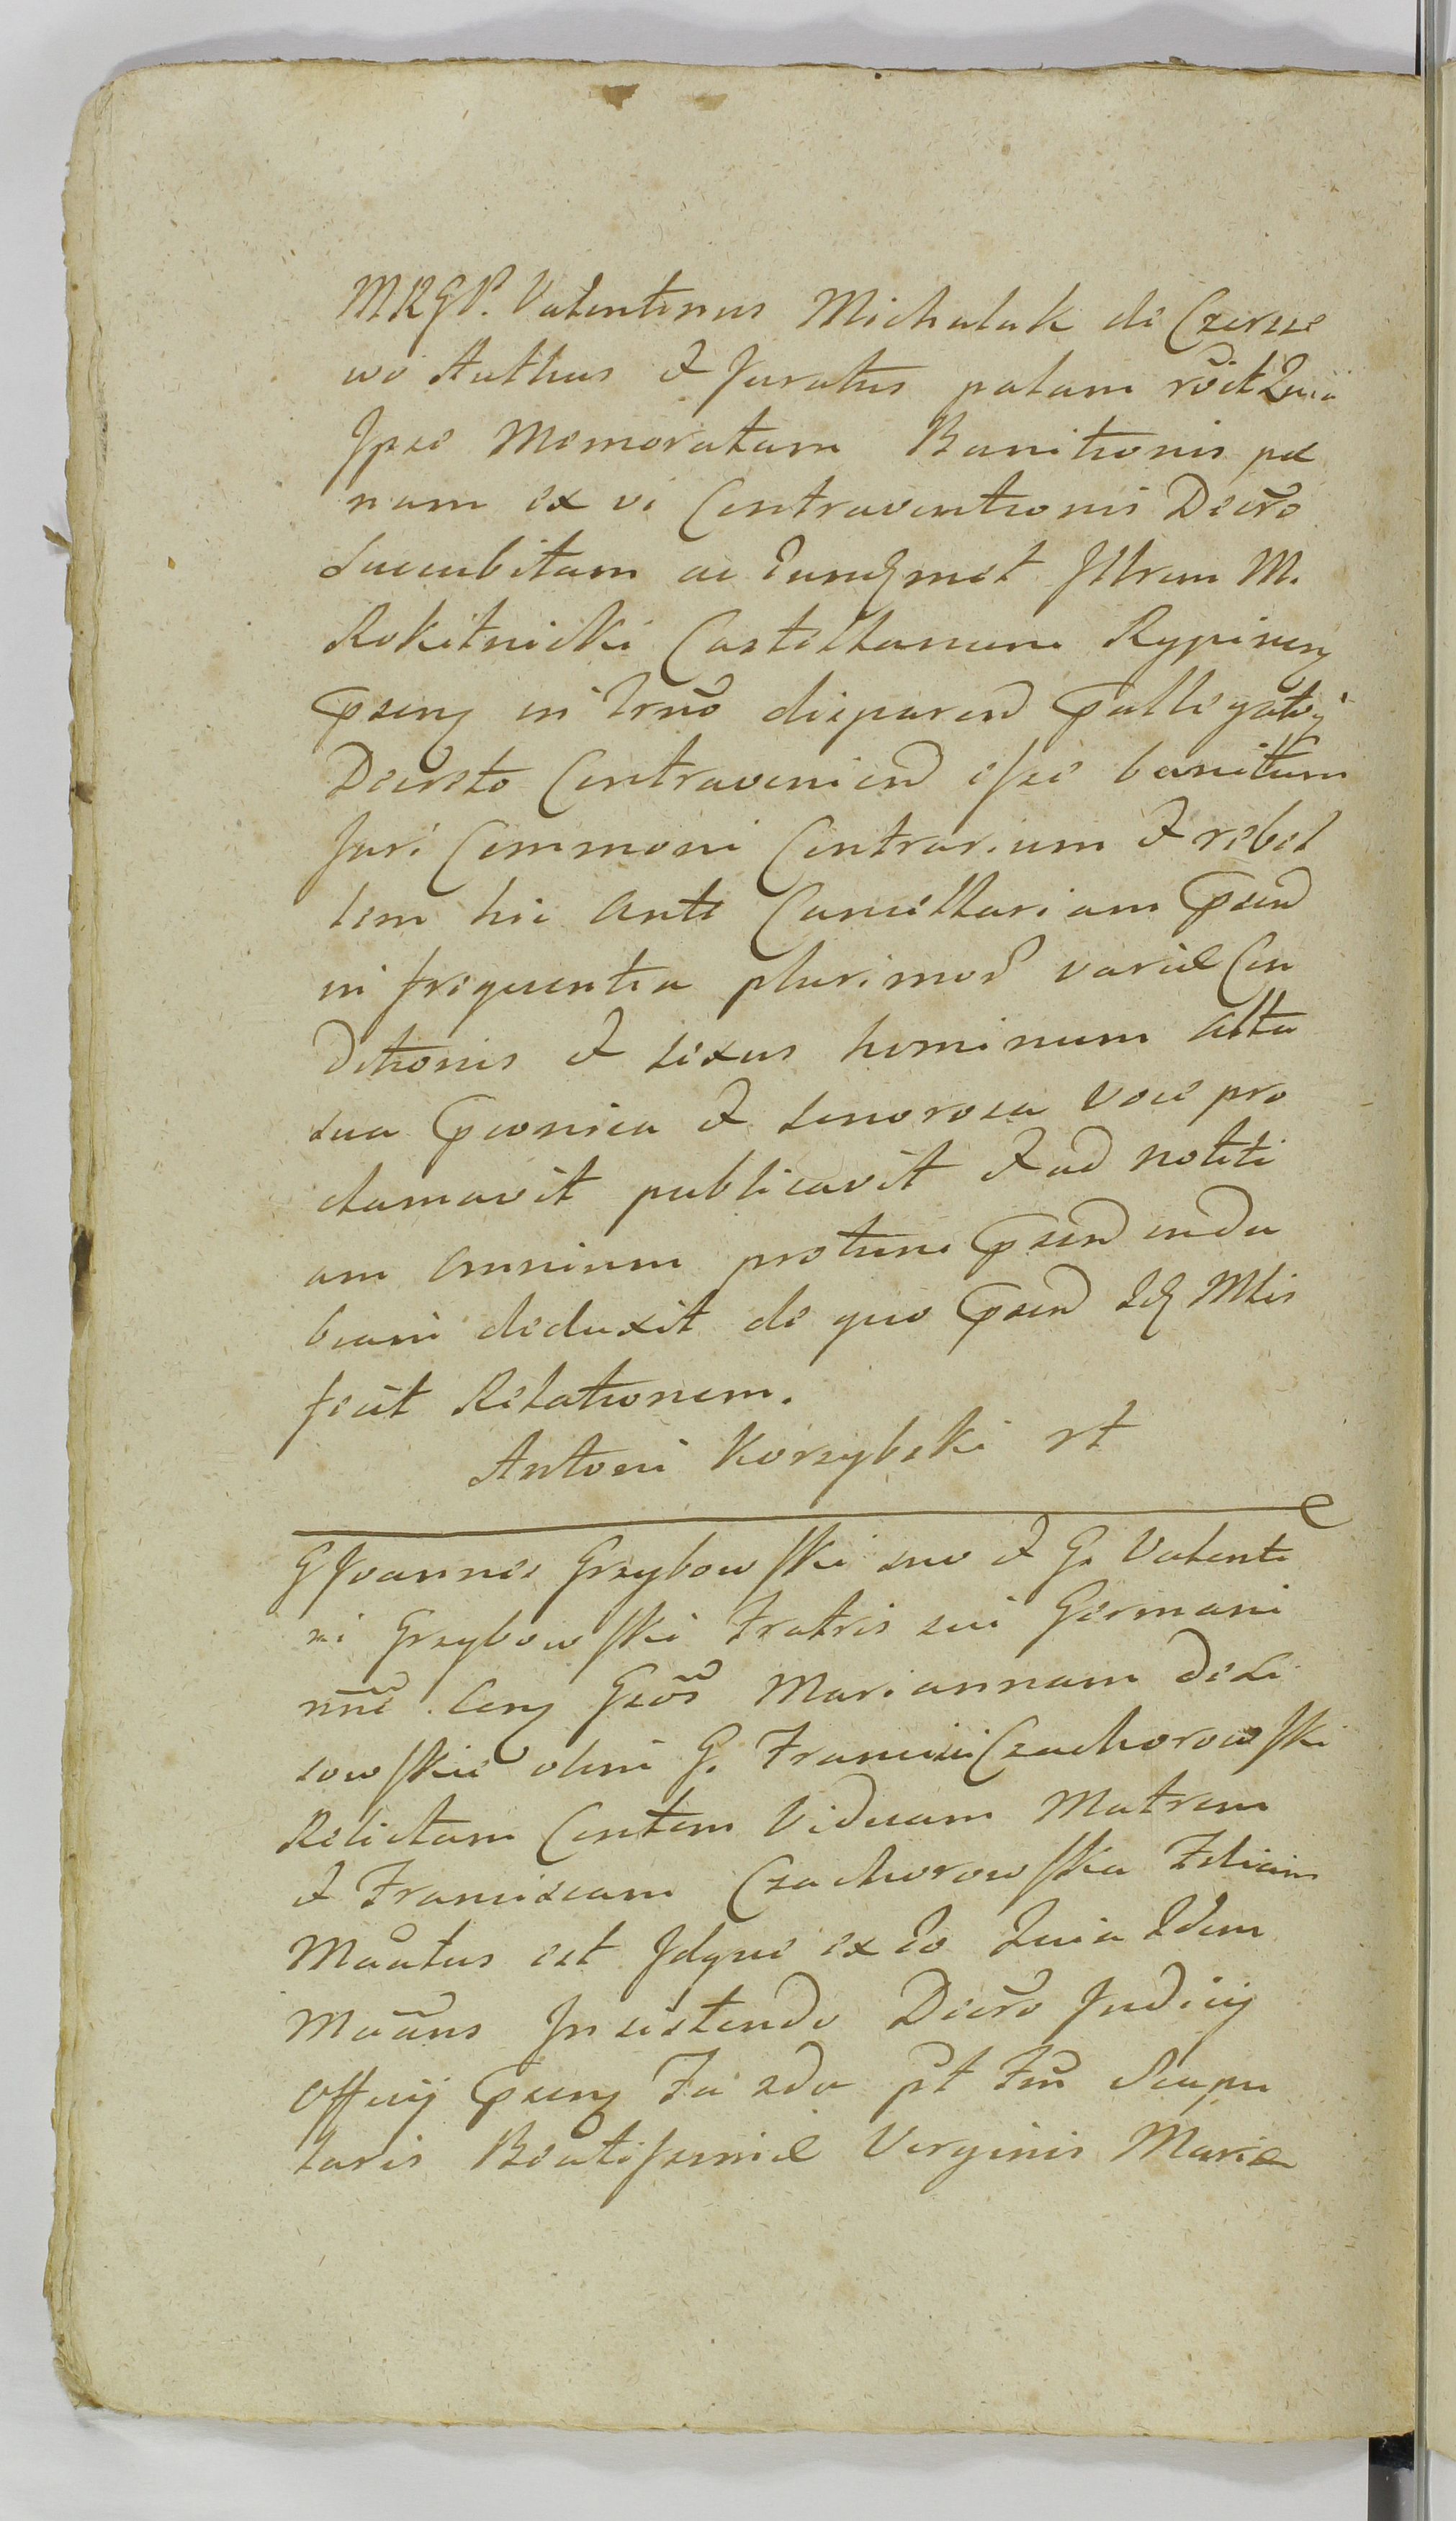 MRGP. Valentinus Michalak de Czersze
wo Authus & Juratus palam rõit Quia
Ipse Memoratam Banitionis pæ
nam ex vi Contraventionis Decr̃o
Succubitam ac Eundmet Illrem M.
Rokitnicki Castellanum Rypinen
Præsen in Trñno disparend Præallegatoq
Decreto Contraveniend esse banitum
Juri Commoni Contrarium & rebel
lem hic Ante Cancellariam Præsend
in frequentia plurimor̃ variæ Con
Ditionis & sexus hominum alta
sua Præconica & sonorosa voce pro
clamavit publicavit & ad notiti
am Omnium protunc Præsend indu
beam deduxit de quo Præsend Id Mlis
fecit Relationem.
Antoni Korzybski rt
G Joannes Grzybowski suo & G. Valenti
ni Grzybowski Fratris sui Germani
nñe Cen Gsõs Mariannam de
sowskie olim G. Francisci Czachorowski
Relictam Contem Viduam Matrem
& Franciscam Czachorowska Filiam
Mãntus est Idque ex Eo Quia Idem
Mãns Insistendo Decr̃o Judicij
Officij Præsen Fa 2da pt Fm̃ Scapu
laris Beatissimæ Virginis Mariæ